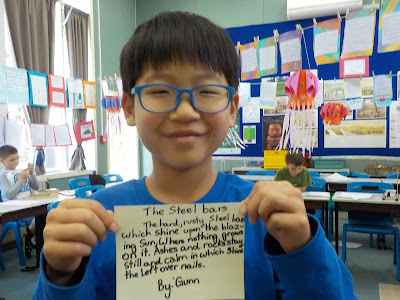 The Steel bars
The hard, rusty Steel bars
which Shine upon the blaz-
ing Sun. Where nothing grows
on it. Ashes and rocks stay
still and calm in which Shine
the left over nails.
By: Gunn